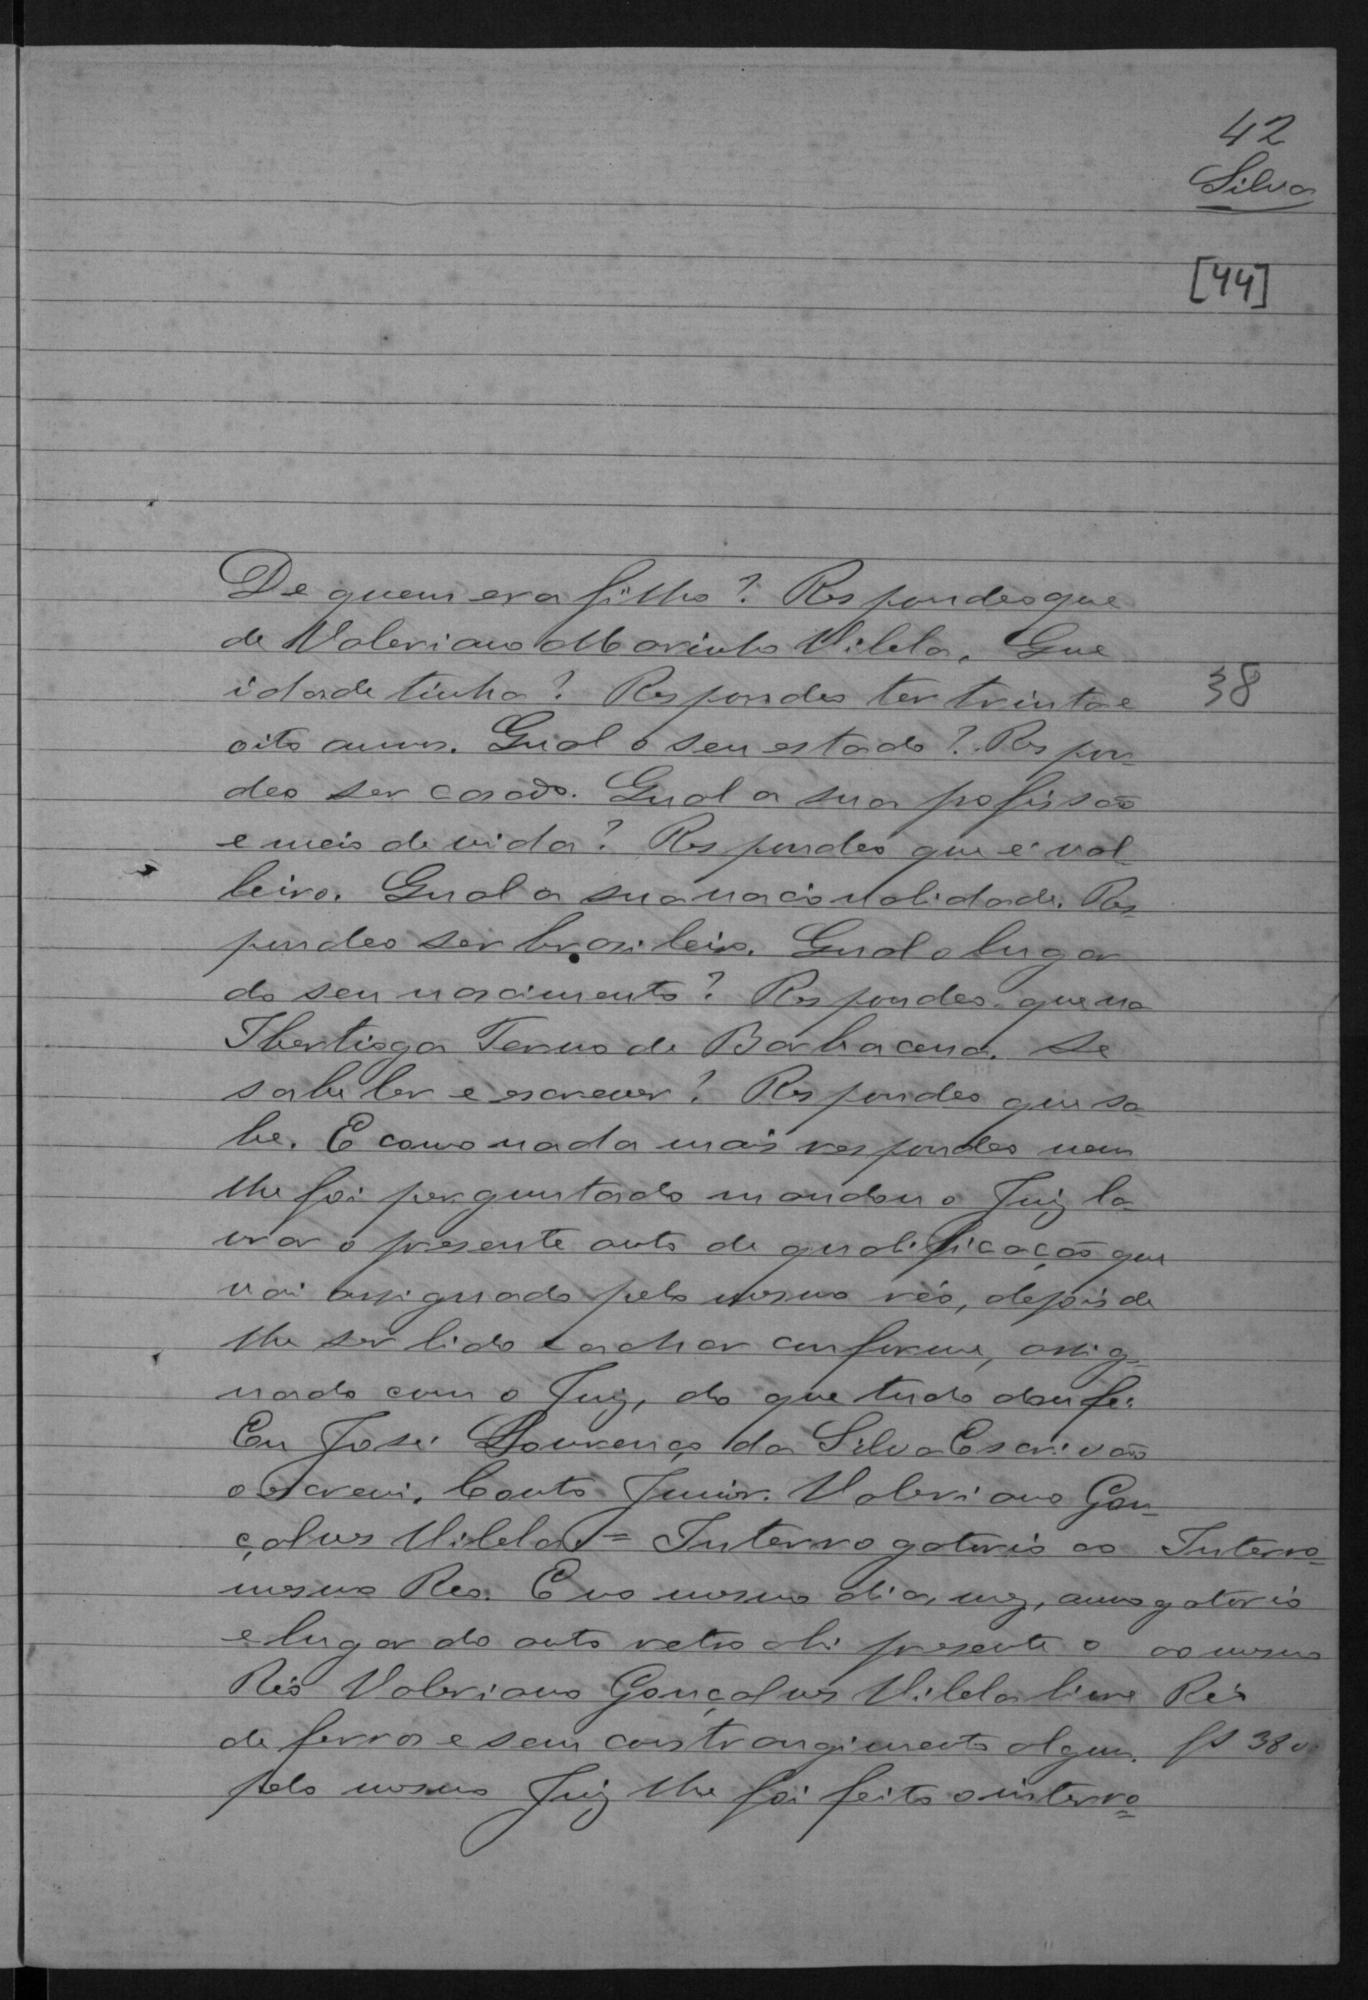 42
Silva
[44]
De quem era filho? Respondeo que
de Valeriano Marinho Vilela. Que
idade tinha? Respondeo ter trinta e
38
oito annos. Qual o seu estado? Respon-
deo ser casado. Qual a sua profissão
e meio de vida? Respondeo que é val-
leiro. Qual a sua nacionalidade. Res
pondeo ser brasileiro. Qual o lugar
do seu nascimento? Respondeo que na
Ibertioga Termo de Barbacena. Se
sabe ler e escrever? Respondeo que sa-
be. E como nada mais respondeo nem
lhe foi perguntado mandou o Juiz la-
vrar o presente auto de qualificação que
vai assignado pelo mesmo réo, depois de
lhe ser lido e achar conforme, assig-
nado com o Juiz, do que tudo dou fé.
Eu José Lourenço da Silva Escrivão
o escrevi. Couto Junior. Valeriano Gon-
çalves Vilela = Interrogatorio ao
mesmo Reo. E no mesmo dia, mez, anno
e lugar do auto retro ahi presente o
Réo Valeriano Gonçalves Vilela livre
de ferros e sem constrangimento algum.
pelo mesmo Juiz lhe foi feito o interro=
Interro=
gatorio
ao mesmo
Réo
fs 38 v.